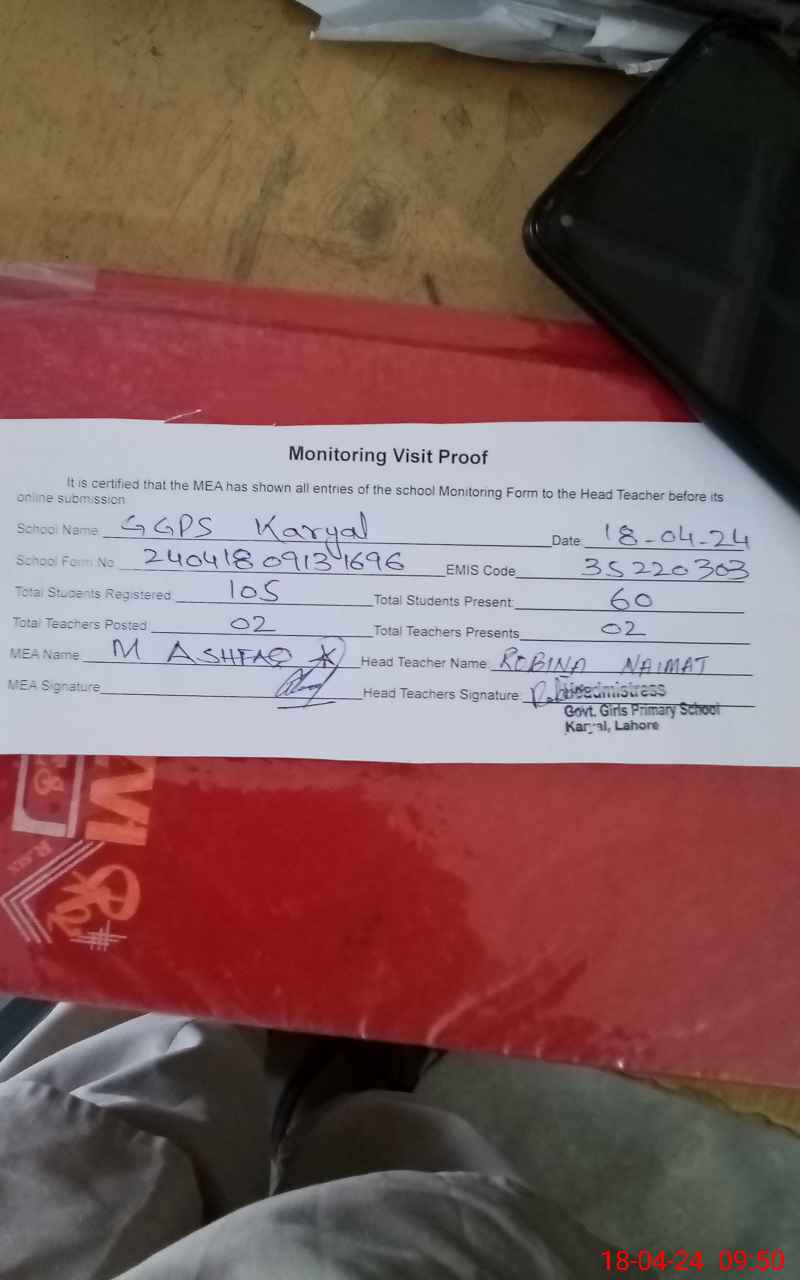 Monitoring Visit Proof
It is certified that the MEA has shown all entries of the school Monitoring Form to the Head Teacher before its
online submission
School Name GGPS Karyal Date 18-04-24
School Form No 240418 0913 1696 EMIS Code 35220303
Total Students Registered: 105 Total Students Present: 60
Total Teachers Posted: 02 Total Teachers Presents 02
MEA Name: M ASHFAQ Head Teacher Name: ROBINA NAIMAT
MEA Signature Head Teachers Signature:
Headmistress
Govt. Girls Primary School
Karyal, Lahore
18-04-24 09:50